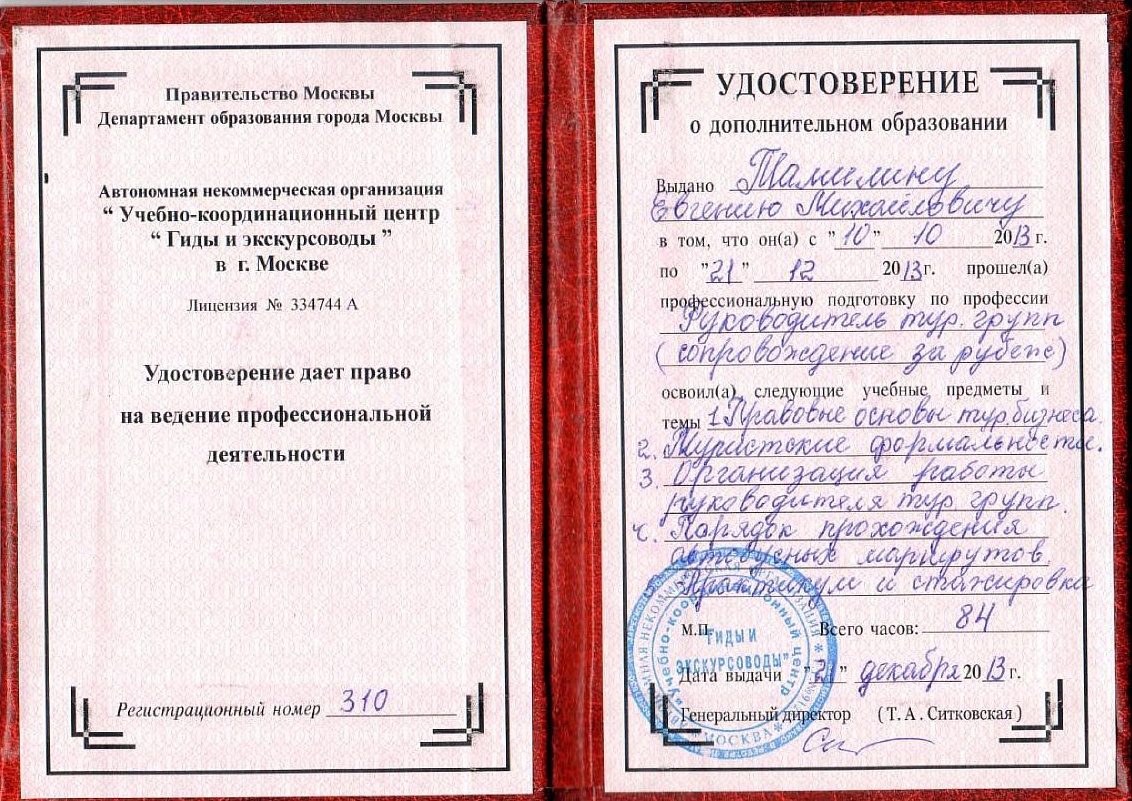 Правительство Москвы
Департамент образования города Москвы
Автономная некоммерческая организация
“ Учебно-координационный центр
“ Гиды и экскурсоводы ”
в г. Москве
Лицензия № 334744 А
Удостоверение дает право
на ведение профессиональной
деятельности
Регистрационный номер 310
УДОСТОВЕРЕНИЕ
о дополнительном образовании
Выдано Тамилину
Евгению Михайловичу
в том, что он(а) с "10" 10 2013 г.
по "21" 12 2013 г. прошел(а)
профессиональную подготовку по профессии
Руководитель тур. групп
(сопровождение за рубеж)
освоил(а) следующие учебные предметы и
темы 1. Правовые основы тур. бизнеса.
2. Туристские формальности.
3. Организация работы
руководителя тур. групп.
4. Порядок прохождения
автобусных маршрутов.
Практикум и стажировка
М.П. Всего часов: 84
"Учебно-координационный центр
"ГИДЫ И
ЭКСКУРСОВОДЫ"
МОСКВА
Дата выдачи "21" декабря 2013 г.
Генеральный директор (Т.А. Ситковская)